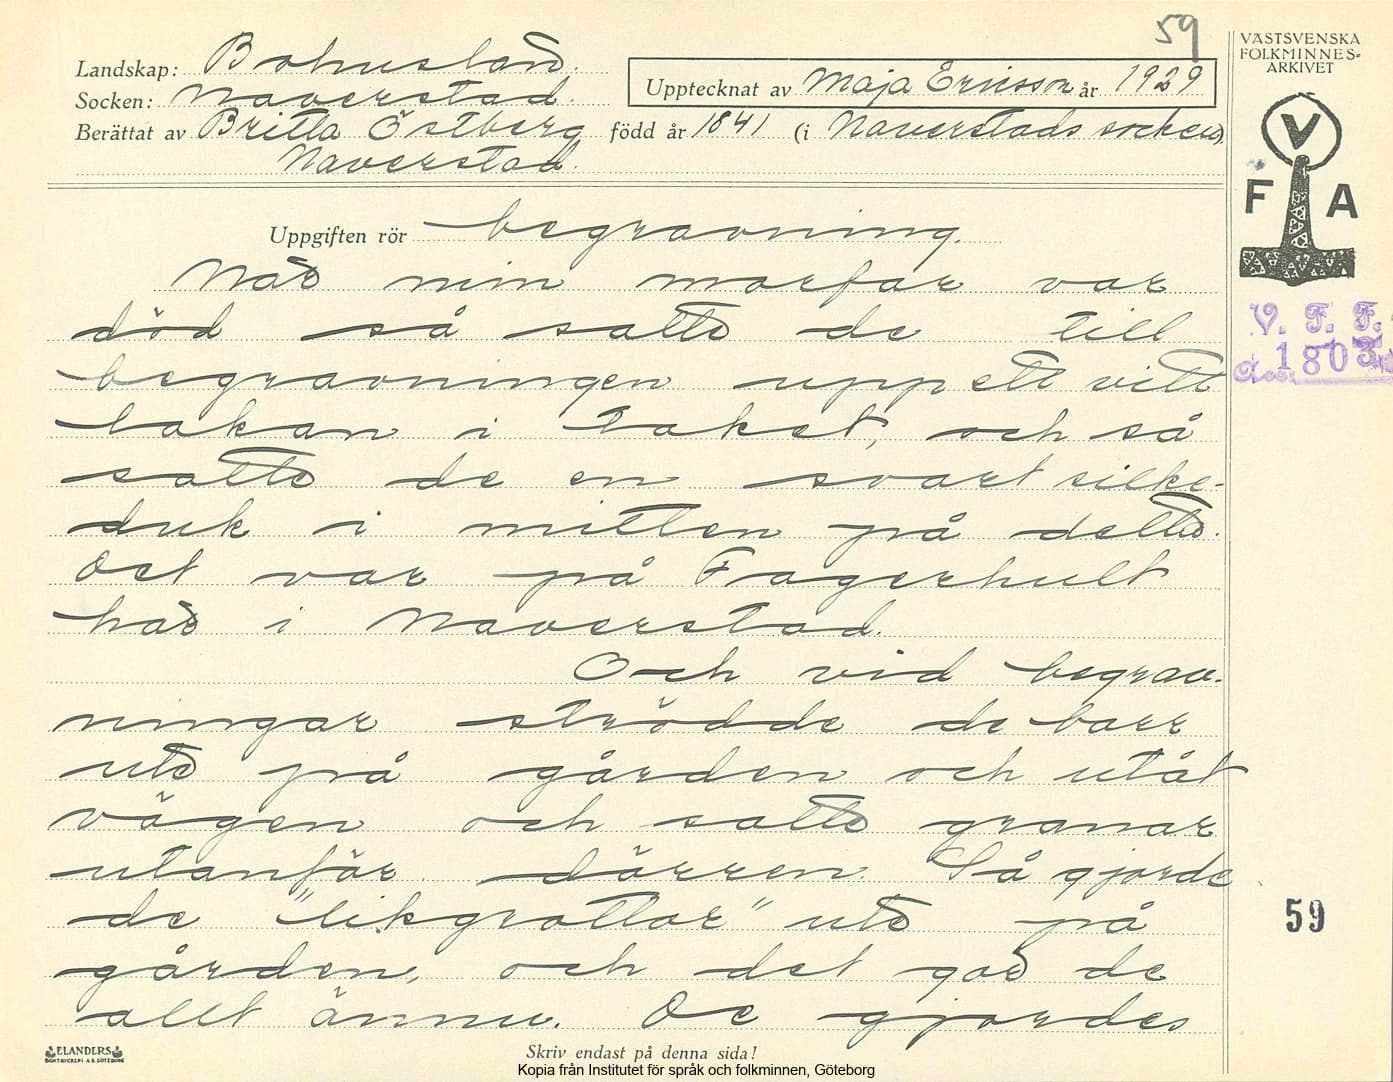 59
VÄSTSVENSKA
FOLKMINNES-
ARKIVET
Landskap: Bohuslän.
Socken: Naverstad.
Upptecknat av Maja Ericsson år 1929
Berättat av Britta Östberg född år 1841 (i Naverstads socken).
Naverstad.
V
F A
V. F. F.
Acc. 1803
Uppgiften rör begravning.
När min morfar var
död så satte de till
begravningen upp ett vitt
lakan i taket, och så
satte de en svart silke-
duk i mitten på detta.
Det var på Fagerhult
här i Naverstad.
Och vid begrav-
ningar strödde de barr
ute på gården och utåt
vägen och satte granar
utanför dörren. Så gjorde
de "likgrottor" ute på
gården, och det gör de
allt ännu. De gjordes
59
ELANDERS
BOKTRYCKERI A.B. GÖTEBORG
Skriv endast på denna sida!
Kopia från Institutet för språk och folkminnen, Göteborg